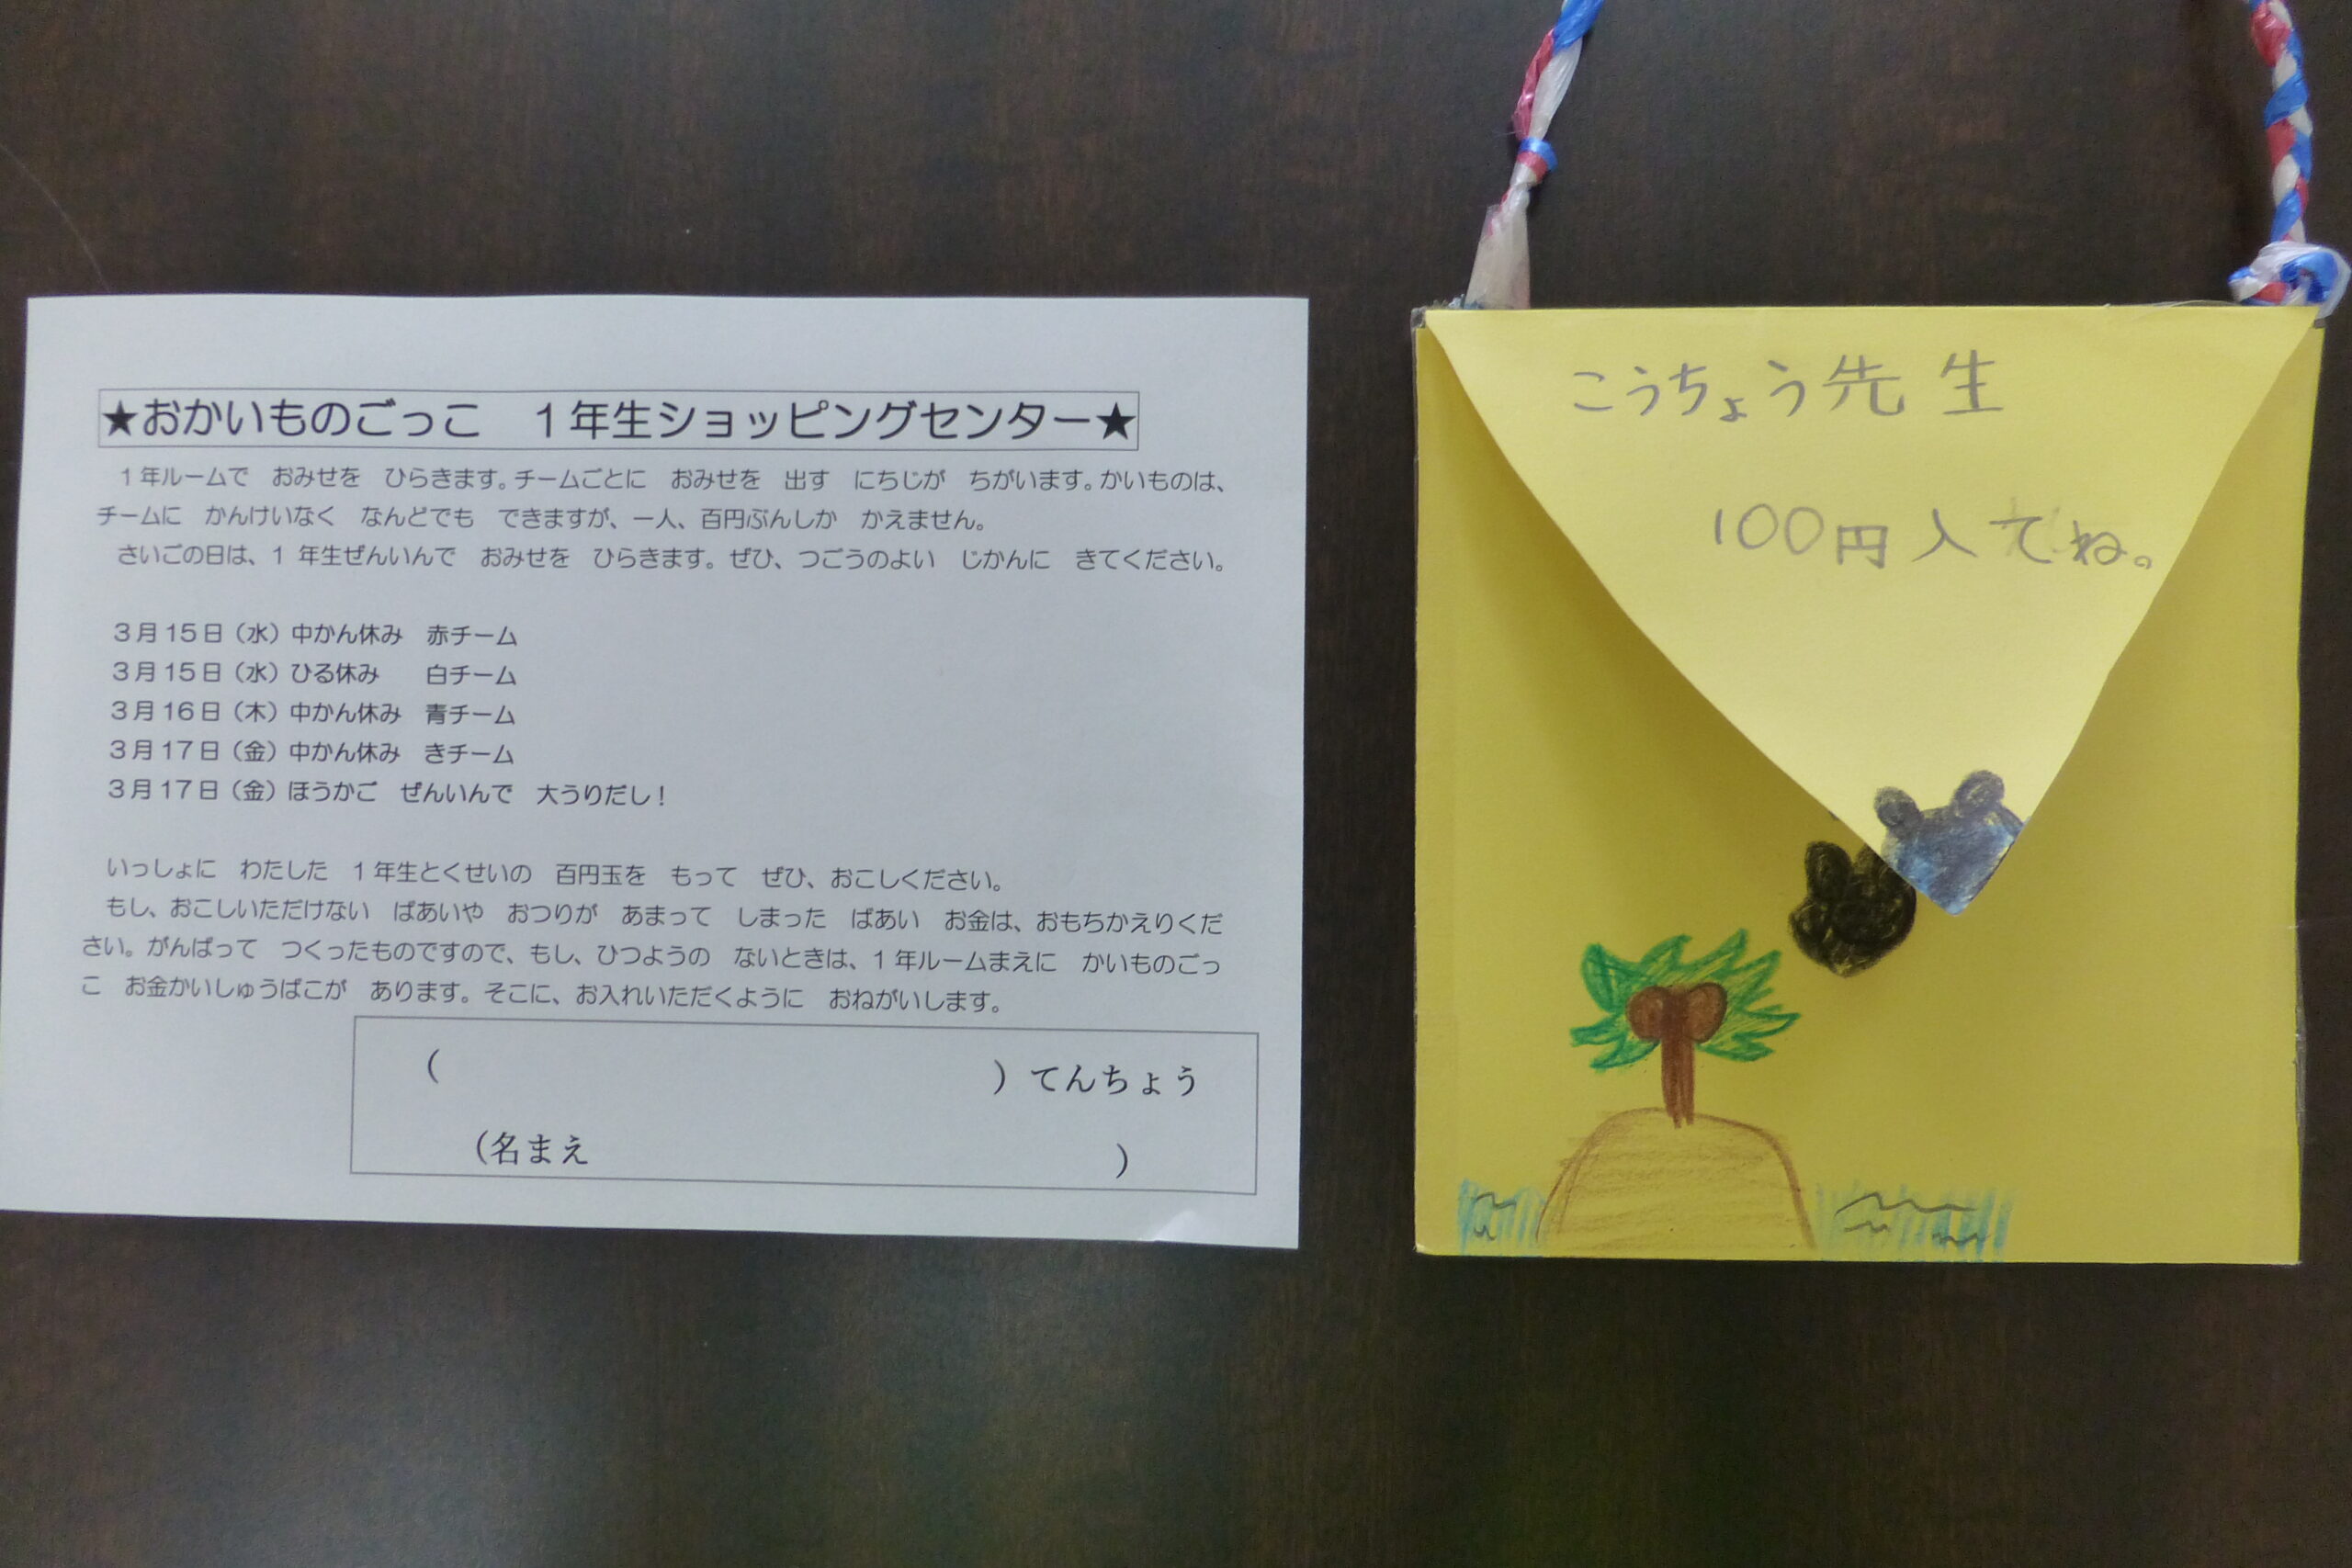 ★おかいものごっこ　１年生ショッピングセンター★
１年ルームで　おみせを　ひらきます。チームごとに　おみせを　出す　にちじが　ちがいます。かいものは、
チームに　かんけいなく　なんどでも　できますが、一人、百円ぶんしか　かえません。
さいごの日は、１年生ぜんいんで　おみせを　ひらきます。ぜひ、つごうのよい　じかんに　きてください。
３月15日（水）中かん休み　赤チーム
３月15日（水）ひる休み　　白チーム
３月16日（木）中かん休み　青チーム
３月17日（金）中かん休み　きチーム
３月17日（金）ほうかご　ぜんいんで　大うりだし！
いっしょに　わたした　１年生とくせいの　百円玉を　もって　ぜひ、おこしください。
もし、おこしいただけない　ばあいや　おつりが　あまって　しまった　ばあい　お金は、おもちかえりくだ
さい。がんばって　つくったものですので、もし、ひつようの　ないときは、１年ルームまえに　かいものごっ
こ　お金かいしゅうばこが　あります。そこに、お入れいただくように　おねがいします。
（　　　　　　　　　　）てんちょう
（名まえ　　　　　　　　　　）
こうちょう先生
100円入てね。